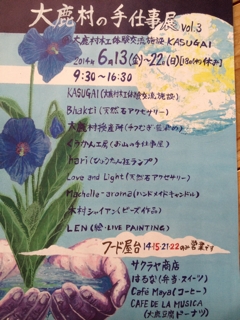 大鹿村の手仕事展 vol.3
大鹿村木工体験交流施設 KASUGAI
2014年 6月13(金)~22(日)
9:30~16:30
KASUGAI(大鹿村木工体験交流施設)
Bhakti(天然石アクセサリー)
大鹿村授産所
工房(お山の手仕事屋)
hari(
Love and Light(天然石アクセサリー)
aroma(ハンドメイドキャンドル)
木村シャイアン(ビーズ作品)
LEN(絵・LIVE PAINTING)
フード屋台 14・15・21・22のみ営業です
サクラヤ商店
はるな(弁当・スイーツ)
Café Maya(コーヒー)
CAFE DE LA MUSICA
(大鹿豆腐ドーナツ)